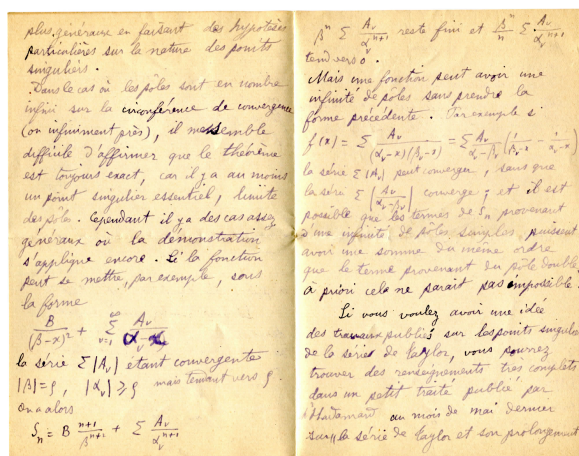 plus généraux en faisant des hypothèses
particulières sur la nature des points
singuliers.
Dans le cas où les pôles sont en nombre
infini sur la circonférence de convergence
(ou infiniment près), il me semble
difficile d'affirmer que le théorème
est toujours exact, car il y a au moins
un point singulier essentiel, limite
des pôles. Cependant il y a des cas assez
généraux où la démonstration
s'applique encore. Si la fonction
peut se mettre, par exemple, sous
la forme
B/(β-x)² + Σ_{ν=1}^{∞} A_ν/(α_ν-x)
la série Σ|A_ν| étant convergente
|β|=ρ, |α_ν| ⩾ ρ mais tendant vers ρ.
On a alors
S_n = B (n+1)/β^{n+1} + Σ A_ν/α_ν^{n+1}
β^n Σ A_ν/α_ν^{n+1} reste fini et β^n/n Σ A_ν/α_ν^{n+1}
tend vers 0.
Mais une fonction peut avoir une
infinité de pôles sans prendre la
forme précédente. Par exemple si
f(x) = Σ A_ν/((α_ν-x)(β_ν-x)) = Σ A_ν/(α_ν-β_ν) (1/(β_ν-x) - 1/(α_ν-x))
la série Σ|A_ν| peut converger, sans que
la série Σ|A_ν/(α_ν-β_ν)| converge; et il est
possible que les termes de S_n provenant
d'une infinité de pôles simples, puissent
avoir une somme du même ordre
que le terme provenant du pôle double
a priori cela ne parait pas impossible.
Si vous voulez avoir une idée
des travaux publiés sur les points singuliers
de la série de Taylor, vous pourrez
trouver des renseignements très complets
dans un petit traité publié par
Hadamard au mois de mai dernier
sur "la série de Taylor et son prolongement